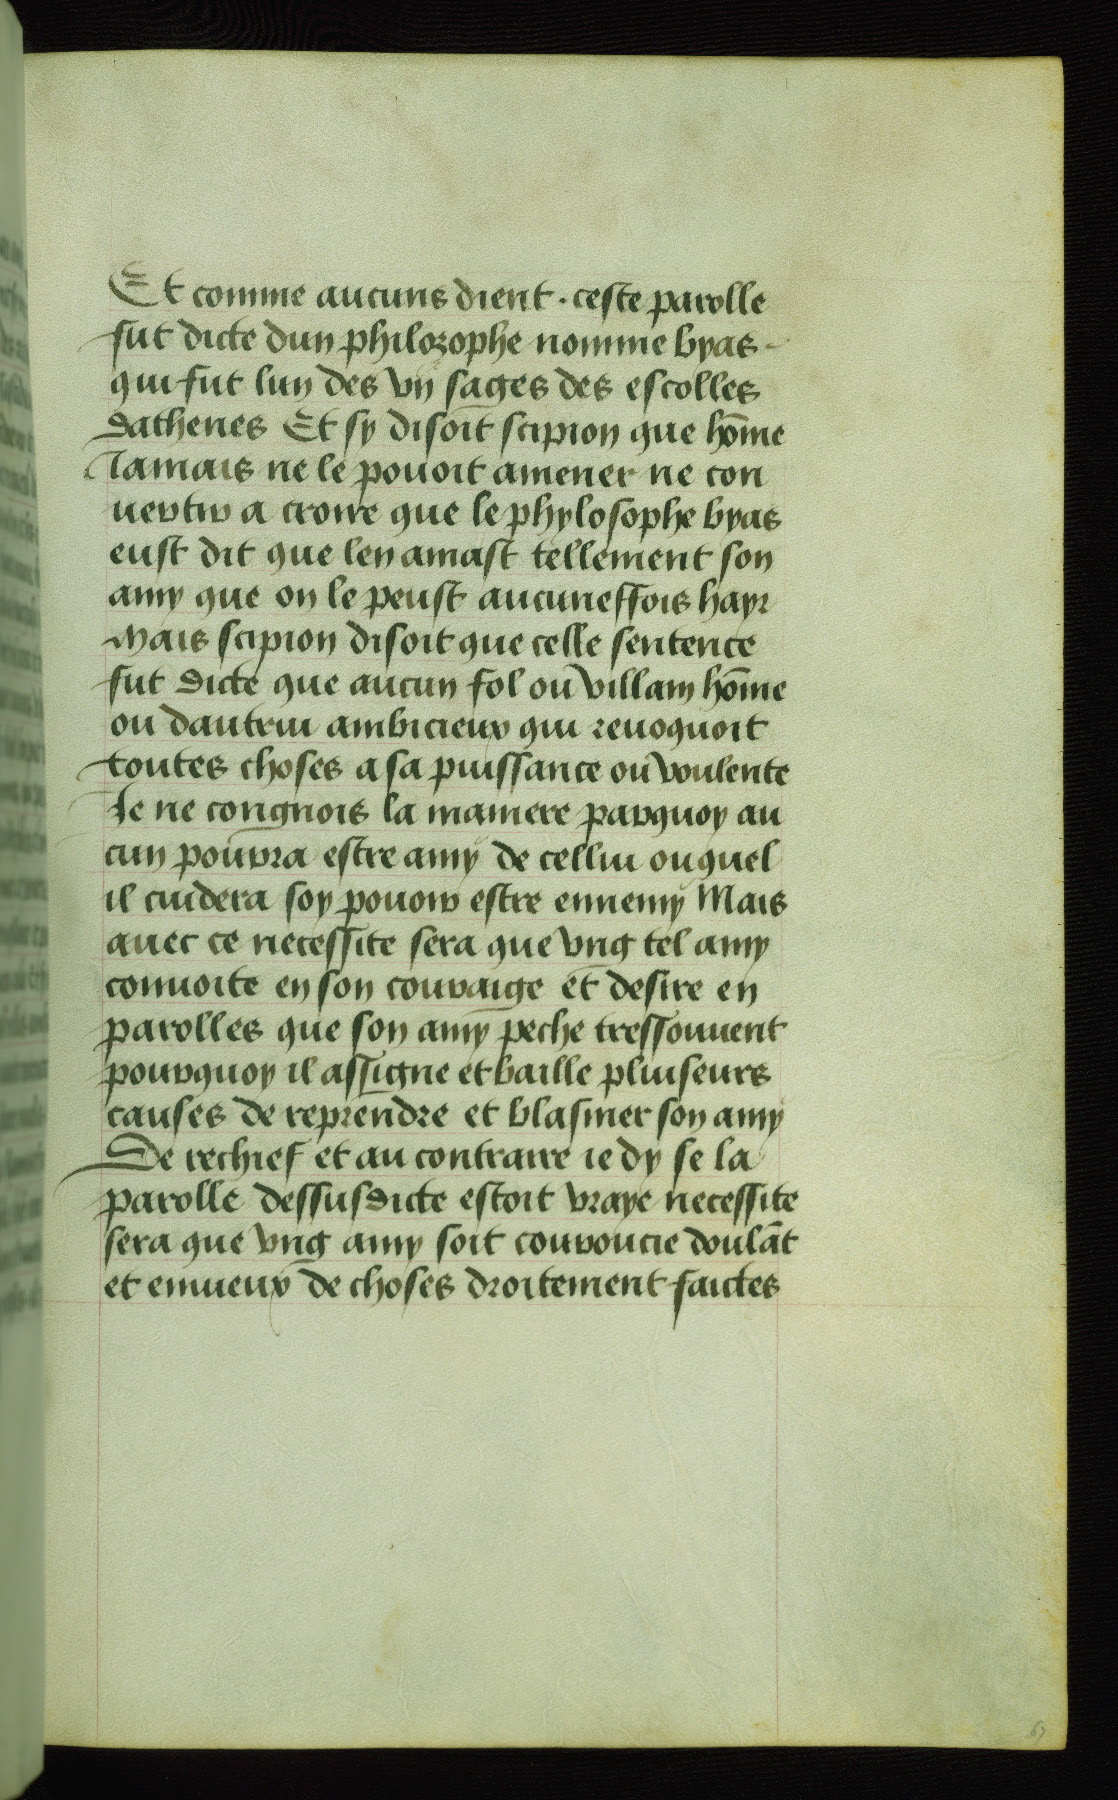 Et comme aucuns dient · ceste parolle
fut dicte dun philozophe nomme byas
qui fut lun des vij sages des escolles
dathenes Et sy disoit scipion que hōme
Jamais ne le pouoit amener ne con
uertir a croire que le phylosophe byas
eust dit que len amast tellement son
amy que on le peust aucuneffois hayr
Mais scipion disoit que celle sentence
fut dicte que aucun fol ou villain hōme
ou dautrui ambicieux qui reuoquoit
toutes choses a sa puissance ou voulente
Je ne congnois la maniere parquoy au
cun pourra estre amy de cellui ouquel
il cuidera soy pouoir estre ennemy Mais
auec ce necessite sera que vng tel amy
conuoite en son couraige et desire en
parolles que son amy peche tressouuent
pourquoy il assigne et baille pluiseurs
causes de reprendre et blasmer son amy
De rechief et au contraire ie dy se la
parolle dessusdicte estoit vraye necessite
sera que vng amy soit couroucie doulāt
et enuieux de choses droitement faictes
67